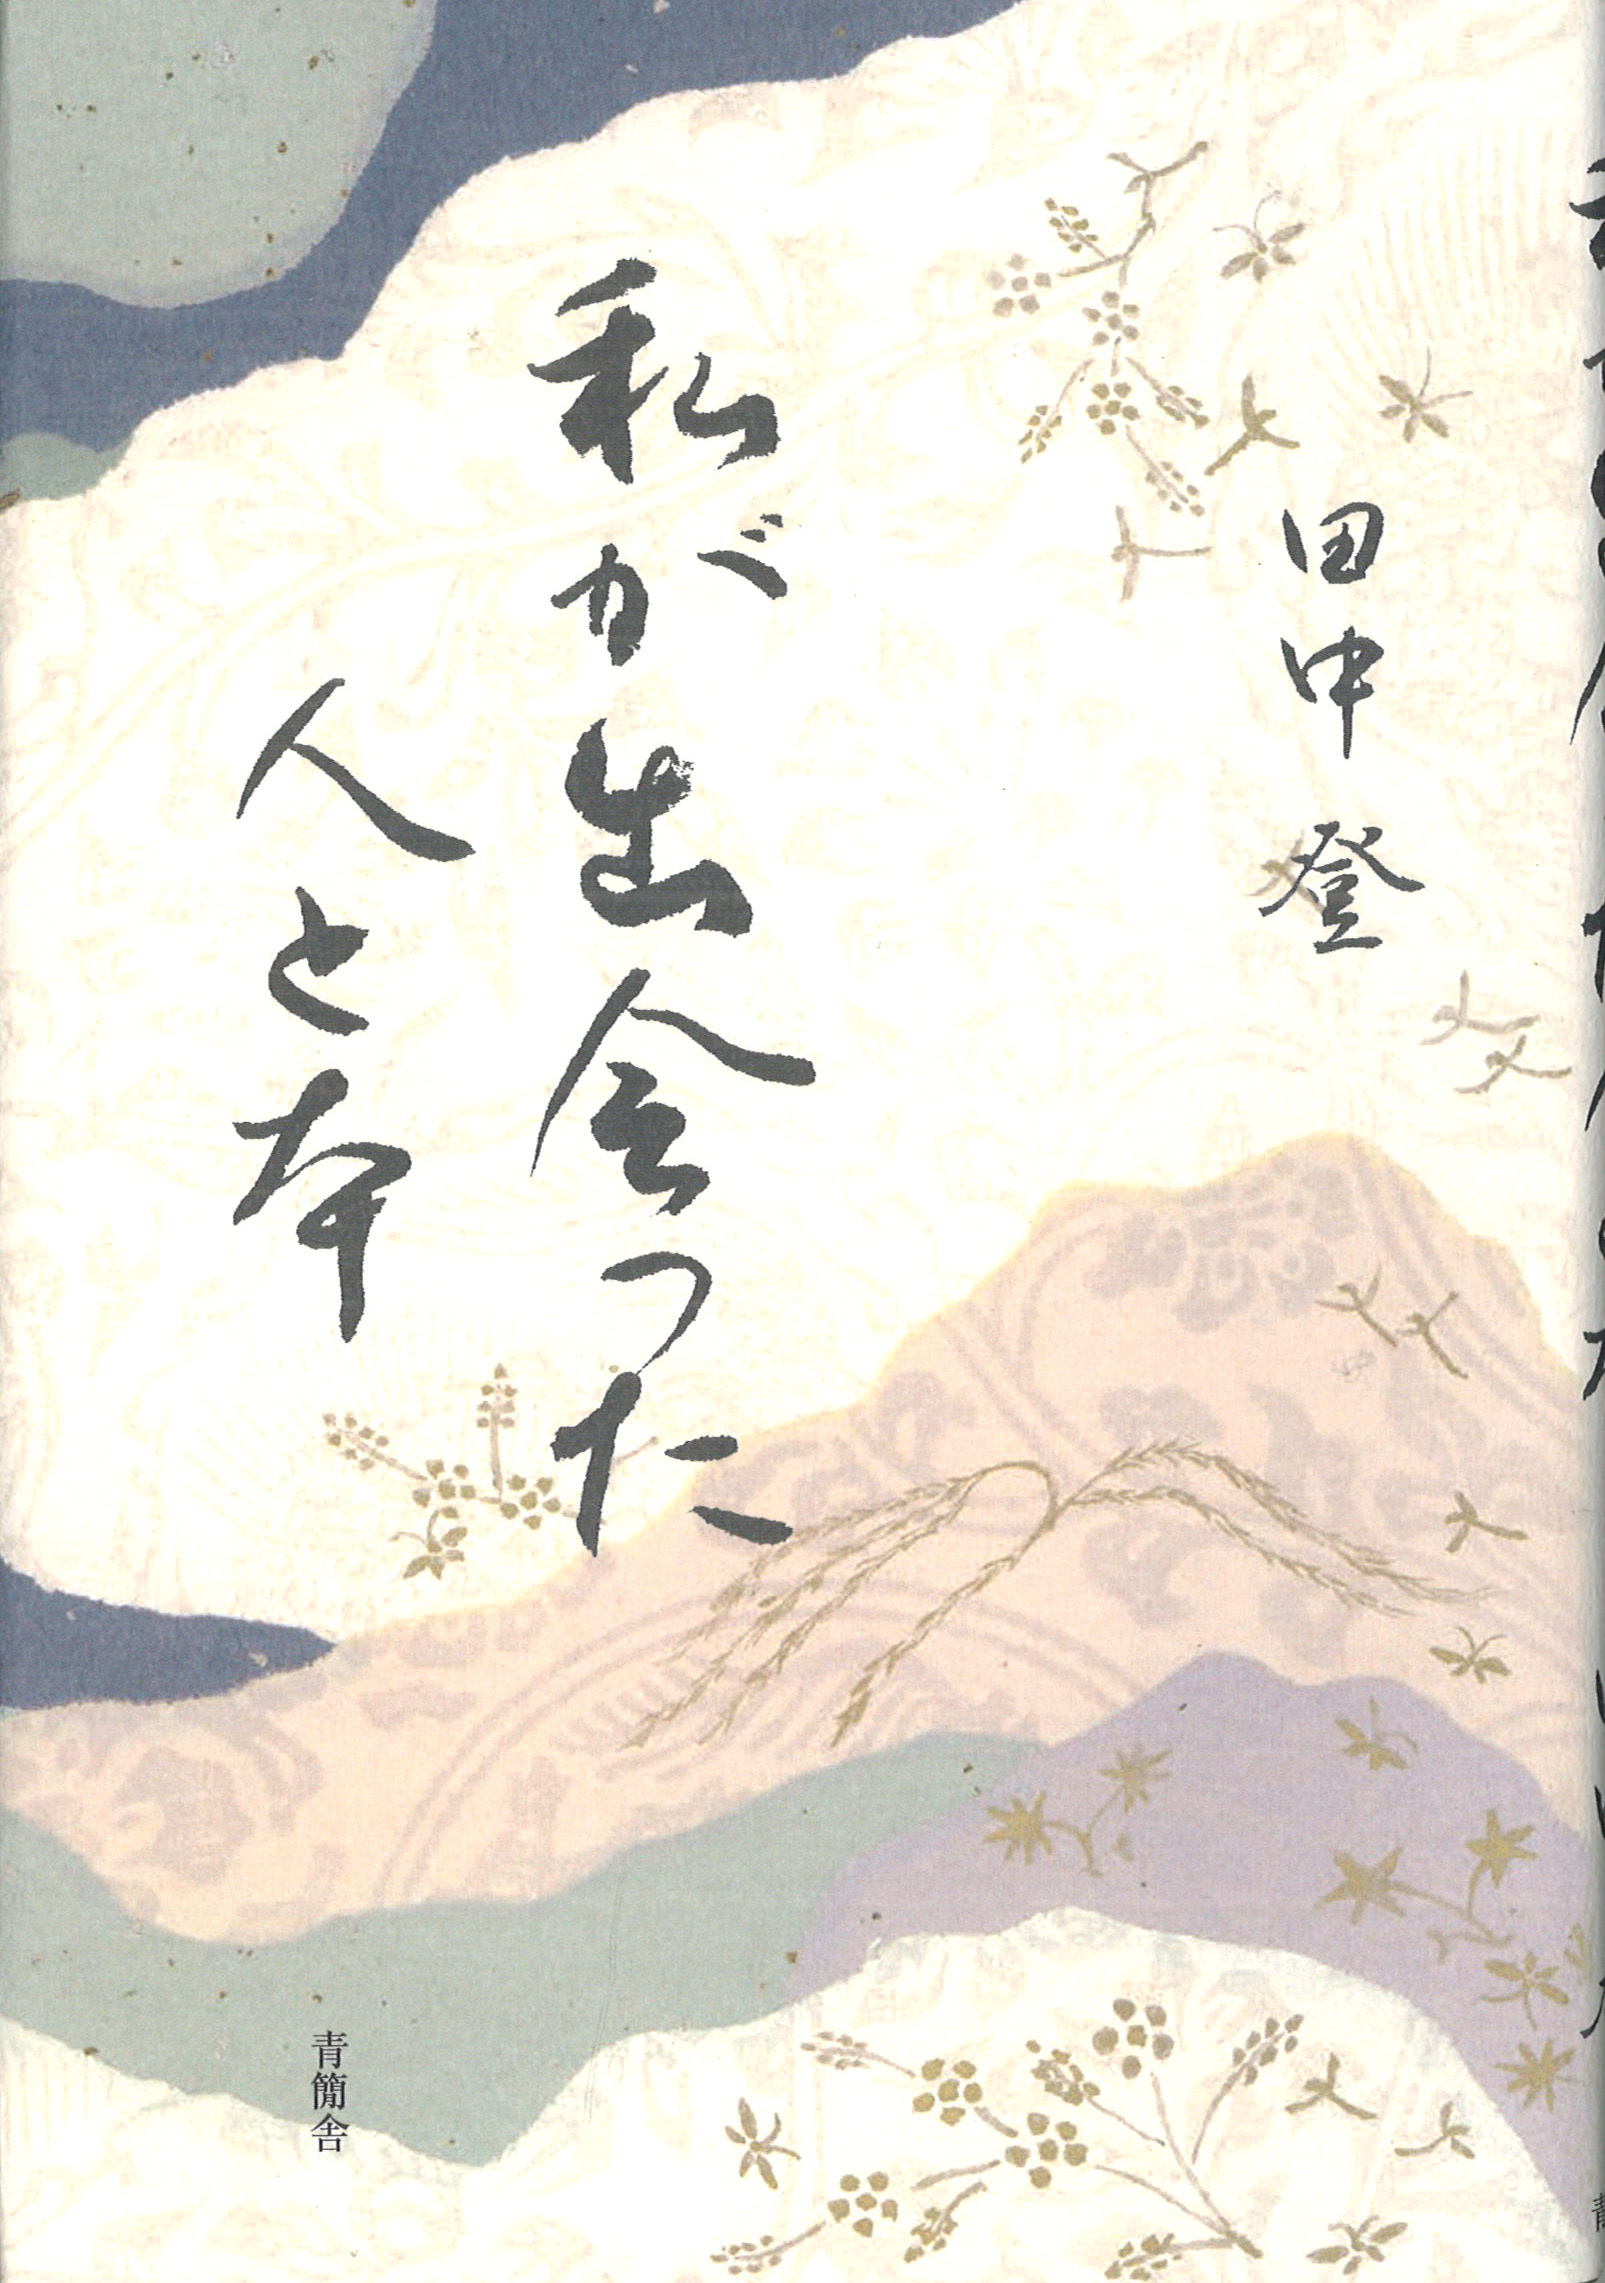 田中 登
私が出会った
人と本
青簡舎